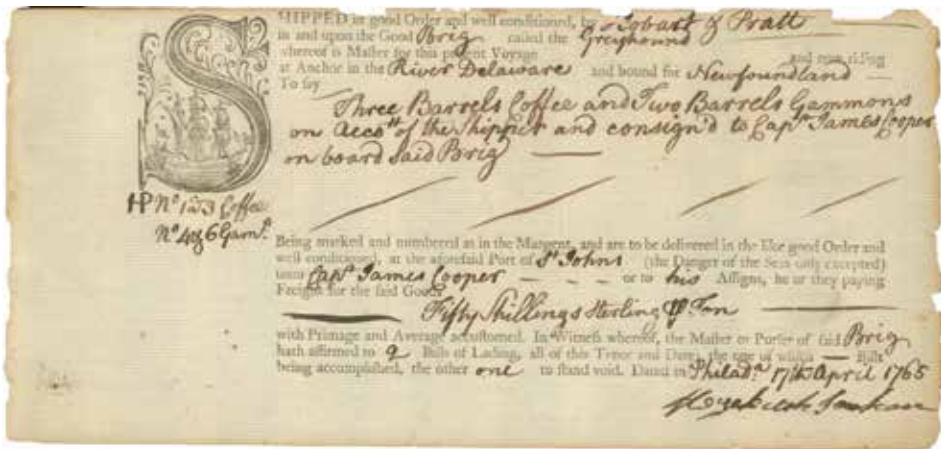 SHIPPED in good Order and well conditioned, by Hobart & Pratt
in and upon the Good Brig called the Greyhound
whereof is Master for this present Voyage and now riding
at Anchor in the River Delaware and bound for Newfoundland
To say
Three Barrels Coffee and Two Barrels Gammons
on Acco.tt of the Shipper and consign'd to Cap.t James Cooper
on board said Brig
HP No 1 a 3 Coffee
No 4 & 6 Gam.s
Being marked and numbered as in the Margent, and are to be delivered in the like good Order and
well conditioned, at the aforesaid Port of St Johns (the Danger of the Seas only excepted)
unto Cap.t James Cooper or to his Assigns, he or they paying
Freight for the said Goods
Fifty Shillings Sterling ⅌ Ton
with Primage and Average accustomed. In Witness whereof, the Master or Purser of said Brig
hath affirmed to 2 Bills of Lading, all of this Tenor and Date, the one of which Bills
being accomplished, the other one to stand void. Dated in Philad.a 17th April 1765